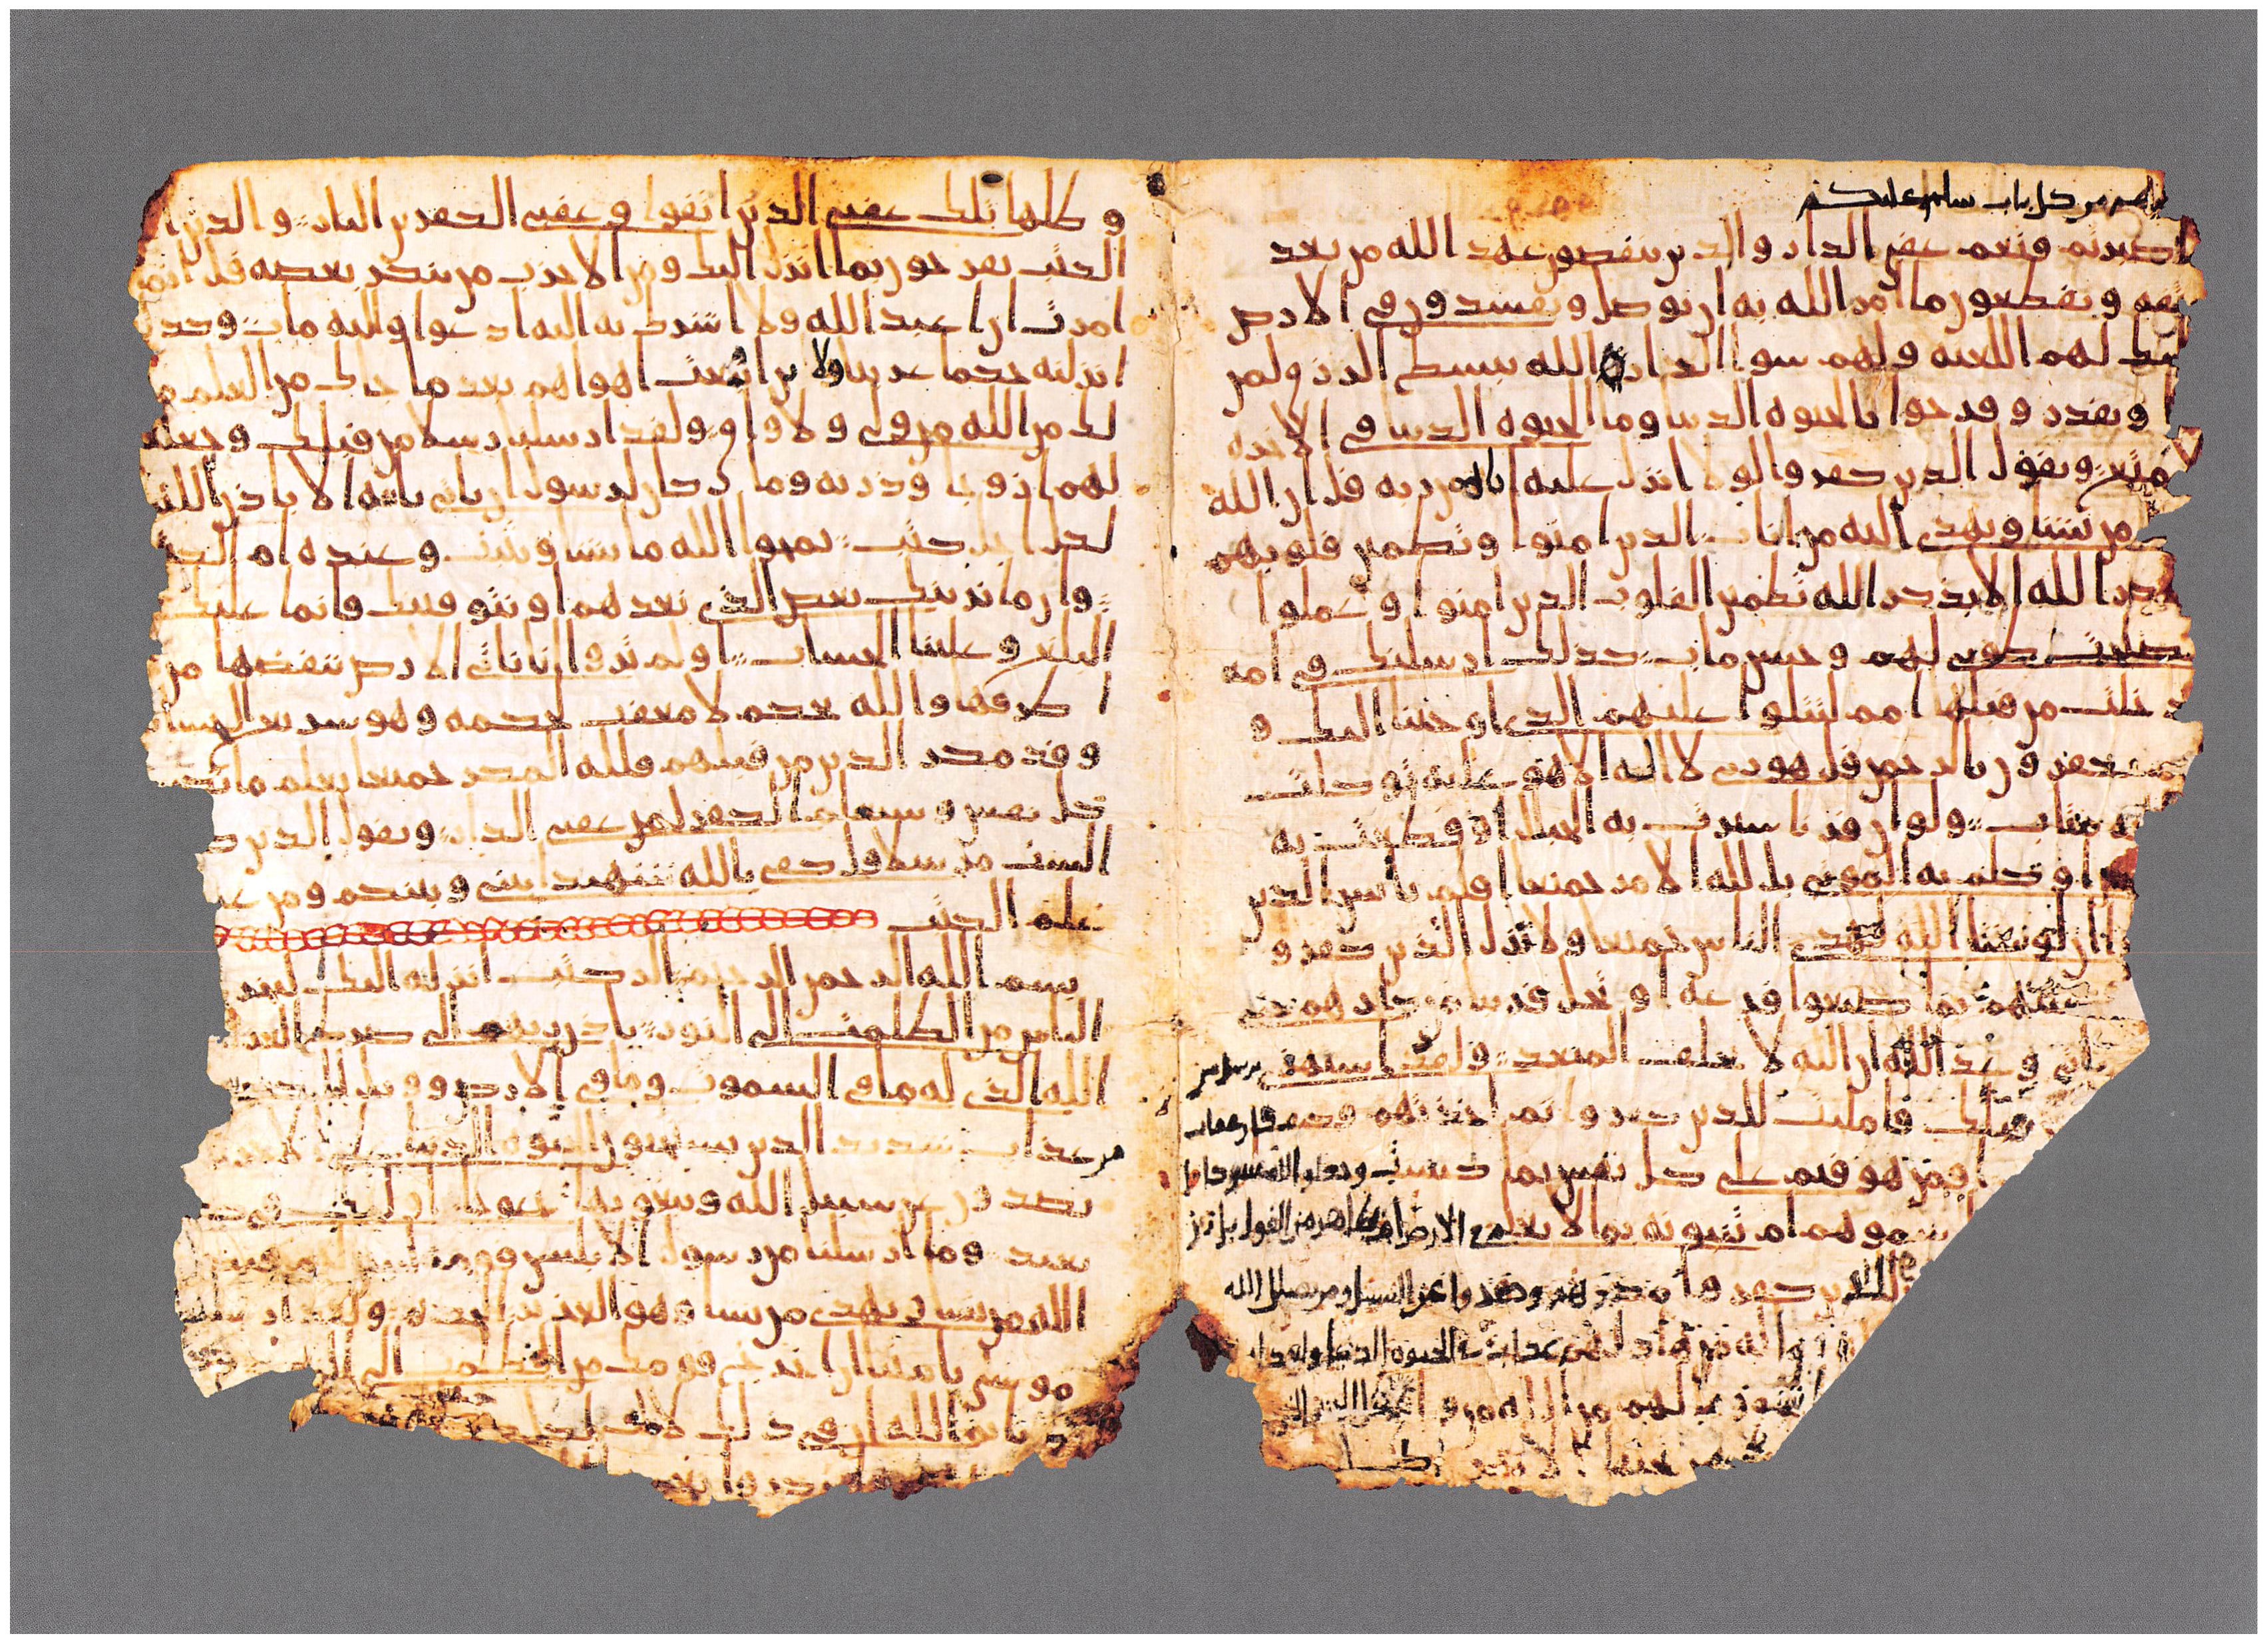 عليهم من كل باب سلم عليكم
صبرتم فنعم عقبى الدار والذين ينقضون عهد الله من بعد
ميثقه ويقطعون ما امر الله به ان يوصل ويفسدون فى الارض
لهم اللعنه ولهم سوا الدار الله يبسط الرزق لمن
ويقدر وفرحوا بالحيوه الدنيا وما الحيوه الدنيا فى الاخره
الا متع ويقول الذين كفروا لولا انزل عليه ايه من ربه قل ان الله
من يشا ويهدى اليه من اناب الذين امنوا وتطمين قلوبهم
بذكر الله الا بذكر الله تطمين القلوب الذين امنوا وعملوا
الصلحت طوبى لهم وحسن ماب كذلك ارسلنك فى امه
قد خلت من قبلها امم لتتلوا عليهم الذى اوحينا اليك و
هم يكفرون بالرحمن قل هو ربى لا اله الا هو عليه توكلت
واليه متاب ولو ان قرنا سيرت به الجبال او قطعت به
الارض او كلم به الموتى بل لله الامر جميعا افلم يايس الذين
لهدى الناس جميعا ولا يزل الذين كفروا
تصيبهم بما صنعوا قرعه او تحل قريبا من دارهم حتى
ياتى وعد الله ان الله لا يخلف الميعد ولقد استهزى برسل من
قبلك فامليت للذين كفروا ثم اخذتهم فكيف كان عقاب
افمن هو قيم على كل نفس بما كسبت وجعلوا لله شركا
سموهم ام تنبونه بما لا يعلم فى الارض ام بظاهر من القول بل زين
للذين كفروا مكرهم وصدوا عن السبيل ومن يضلل الله
لهم عذاب فى الحيوه الدنيا ولعذاب
لهم من الله من واق
تجرى من تحتها الانهر اكلها
وظلها تلك عقبى الذين اتقوا وعقبى الكفرين النار والذين ا
الكتب يفرحون بما انزل اليك ومن الاحزب من ينكر بعضه قل انما
امرت ان اعبد الله ولا اشرك به اليه ادعوا واليه ماب وكذ
انزلنه حكما عربيا ولين اتبعت اهواهم بعد ما جاك من العلم ما
لك من الله من ولى ولا واق ولقد ارسلنا رسلا من قبلك وجعلنا
لهم ازوجا وذريه وما كان لرسول ان ياتى بايه الا باذن الله
لكل اجل كتب يمحوا الله ما يشا ويثبت وعنده ام الكتب
وان ما نرينك بعض الذى نعدهم او نتوفينك فانما عليك
البلغ وعلينا الحساب اولم يروا انا ناتى الارض ننقصها من
اطرفها والله يحكم لا معقب لحكمه وهو سريع الحساب
وقد مكر الذين من قبلهم فلله المكر جميعا يعلم ما تكسب
كل نفس وسيعلم الكفر لمن عقبى الدار ويقول الذين ك
لست مرسلا قل كفى بالله شهيدا بينى وبينكم ومن عنده
علم الكتب
بسم الله الرحمن الرحيم الر كتب انزلنه اليك لتخرج
الناس من الظلمت الى النور باذن ربهم الى صرط العزيز
الله الذى له ما فى السموت وما فى الارض وويل للكفرين
من عذاب شديد الذين يستحبون الحيوه الدنيا على الاخره
يصدون عن سبيل الله ويبغونها عوجا اوليك فى ضلل
بعيد وما ارسلنا من رسول الا بلسن قومه ليبين لهم فيضل
الله من يشا ويهدى من يشا وهو العزيز الحكيم ولقد ارسلنا
موسى بايتنا ان اخرج قومك من الظلمت الى النور
بايم الله ان فى ذلك لايت لكل